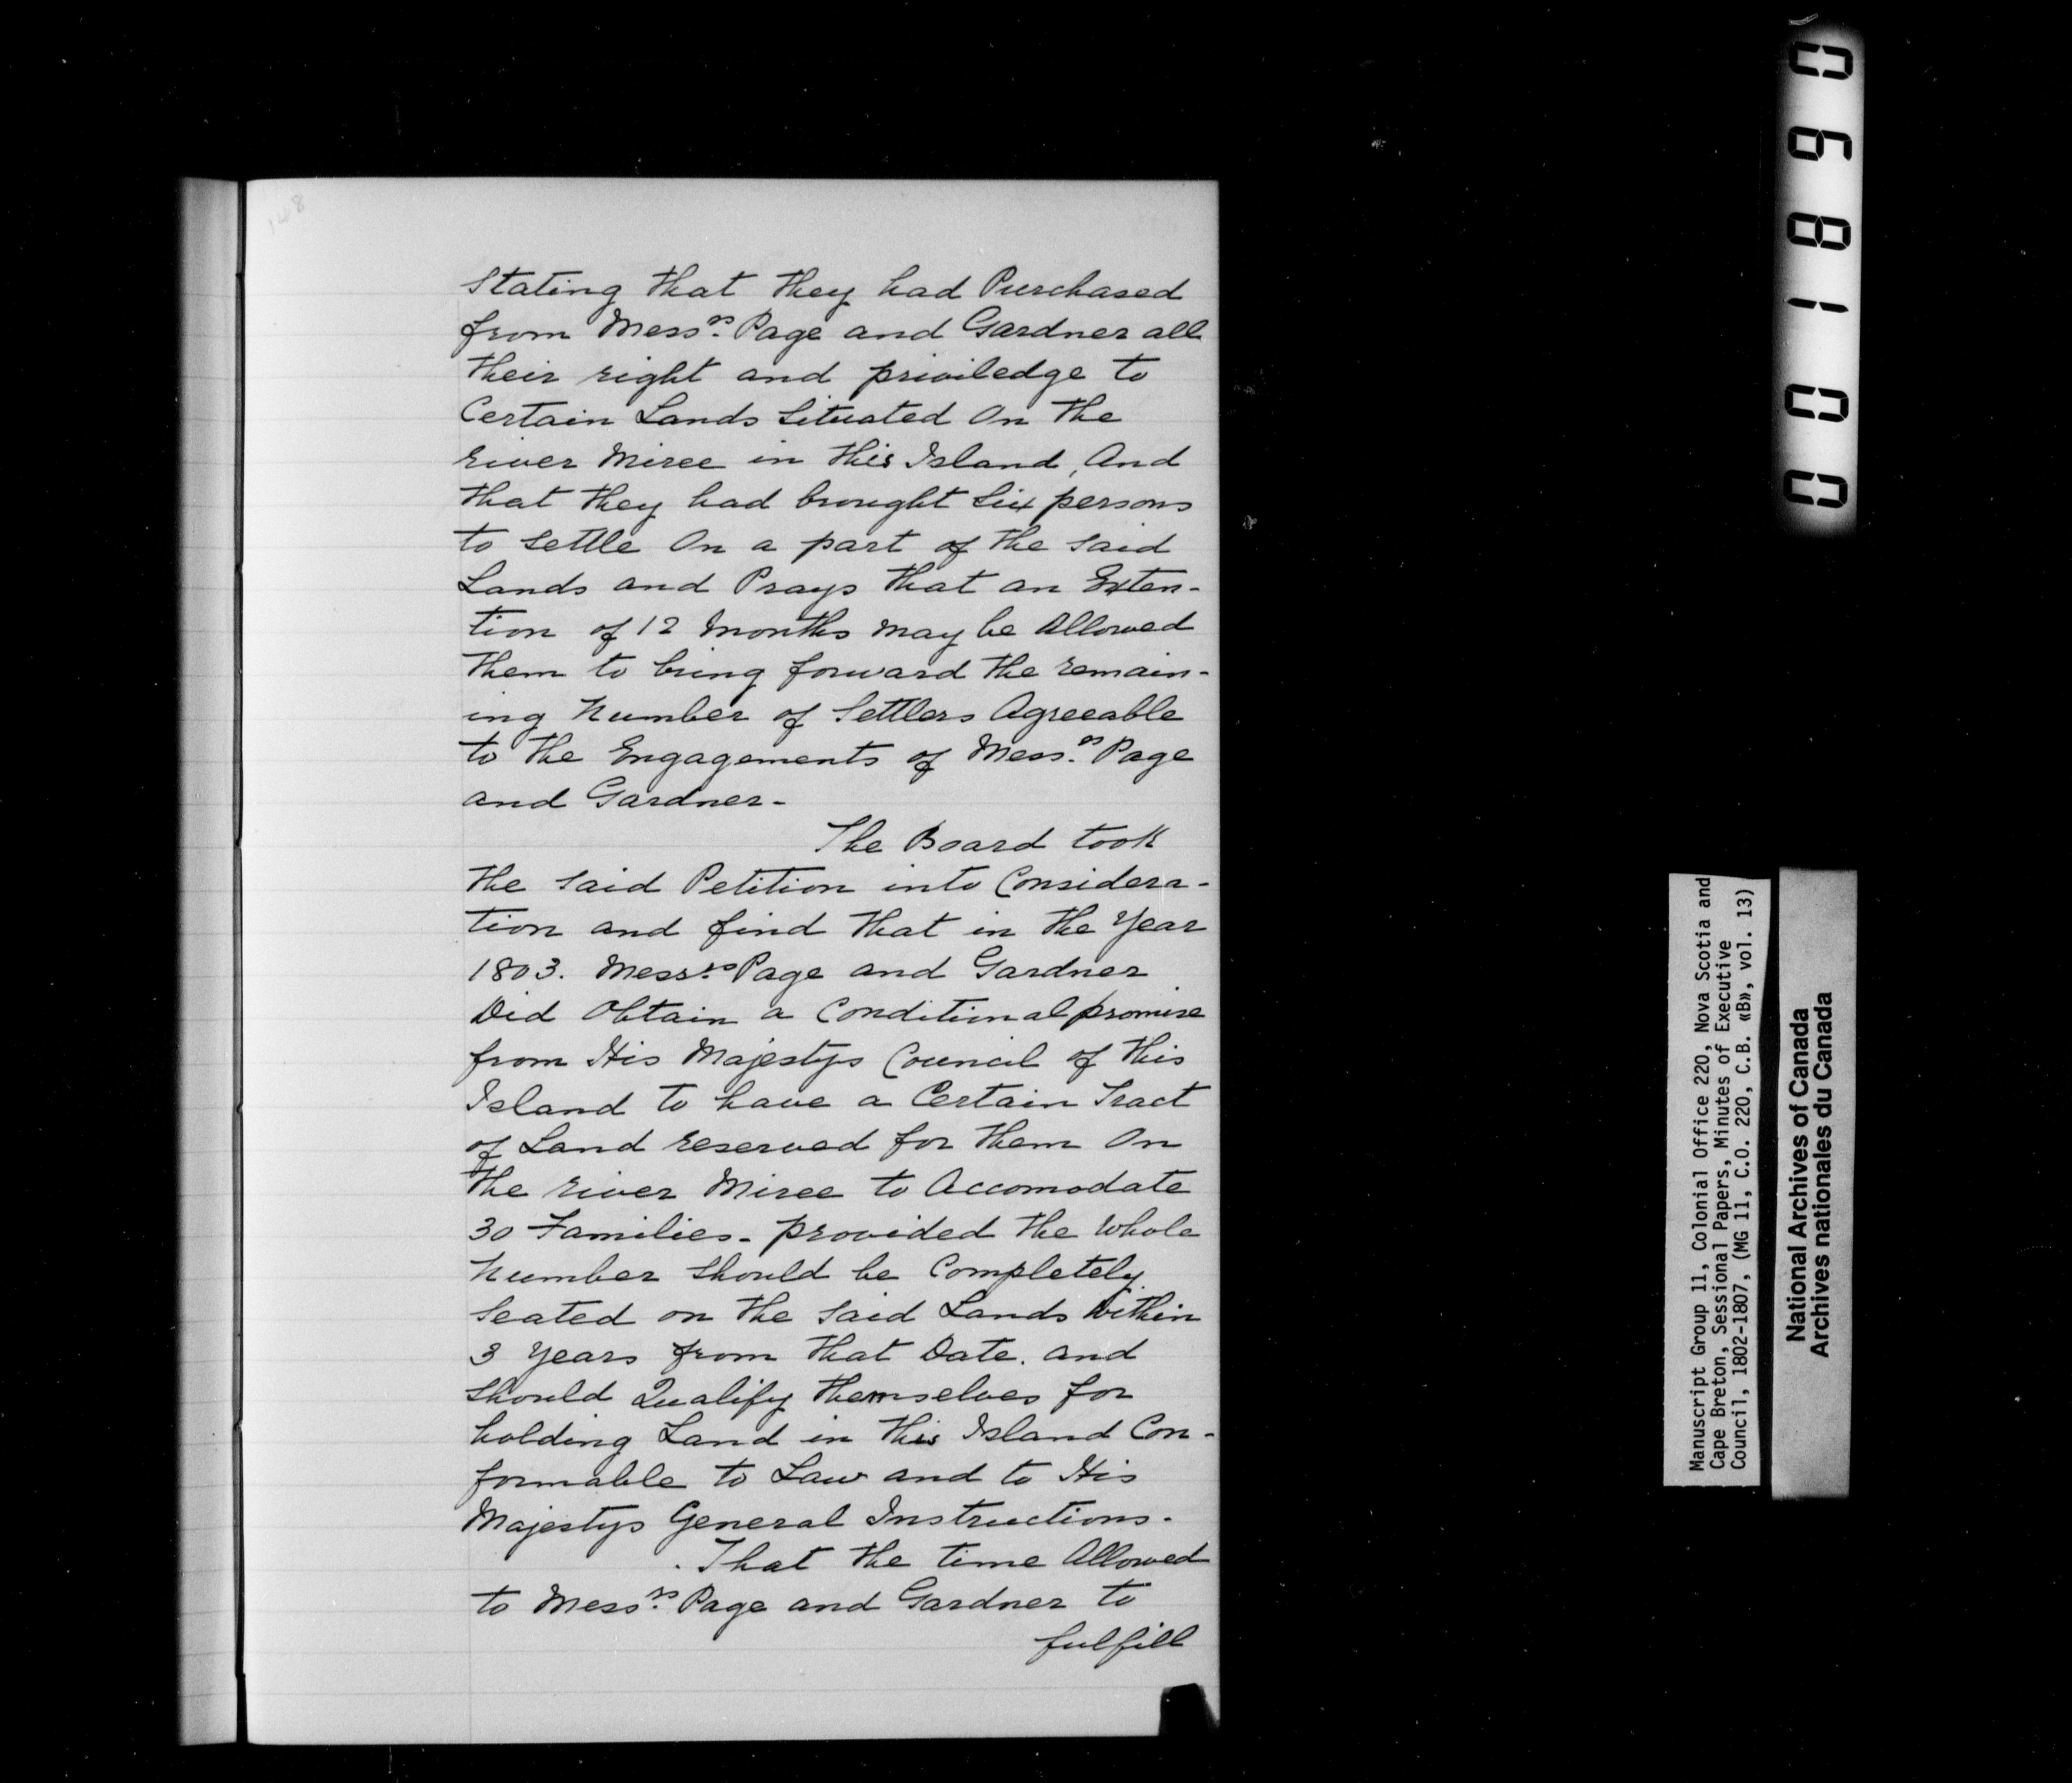 148
Stating that they had Purchased
from Mess.rs Page and Gardner all
their right and priviledge to
Certain Lands Situated On the
river Miree in this Island, And
that they had brought Six persons
to settle On a part of the said
Lands and Prays that an Exten-
tion of 12 months may be Allowed
them to bring forward the remain-
ing Number of Settlers Agreeable
to the Engagements of Mess.rs Page
and Gardner-
The Board took
the said Petition into Considera-
tion and find that in the Year
1803. Messrs. Page and Gardner
Did Obtain a Conditional promise
from His Majestys Council of this
Island to have a Certain Tract
of Land reserved for them On
the river Miree to Accomodate
30 Families - provided the Whole
Number should be Completely
Seated on the said Lands Within
3 Years from that Date. and
should Qualify themselves for
holding Land in this Island Con-
formable to Law and to His
Majestys General Instructions.
That the time Allowed
to Mess.rs Page and Gardner to
fulfill
001890
Manuscript Group 11, Colonial Office 220, Nova Scotia and
Cape Breton, Sessional Papers, Minutes of Executive
Council, 1802-1807, (MG 11, C.O. 220, C.B. «B», vol. 13)
National Archives of Canada
Archives nationales du Canada